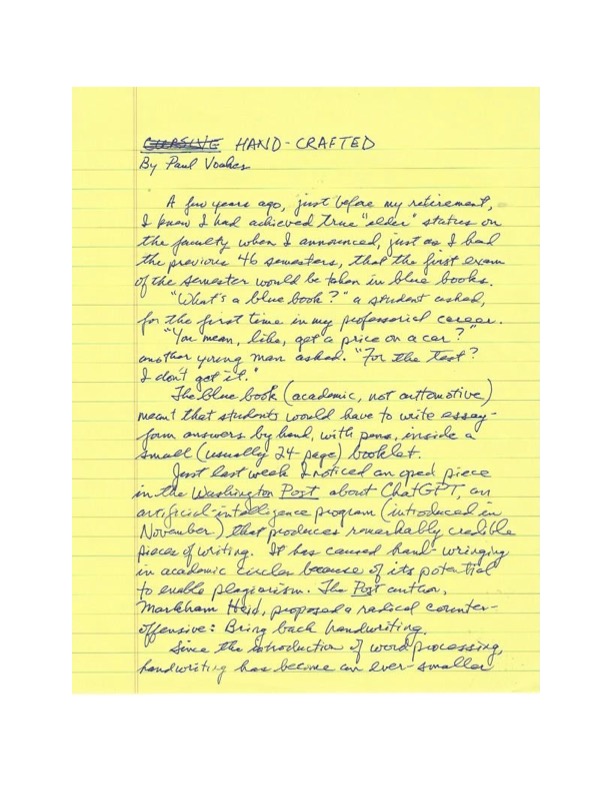 CURSIVE HAND-CRAFTED
By Paul Voakes
A few years ago, just before my retirement,
I knew I had achieved true "elder" status on
the faculty when I announced, just as I had
the previous 46 semesters, that the first exam
of the semester would be taken in blue books.
"What's a blue book?" a student asked,
for the first time in my professorial career.
"You mean, like, get a price on a car?"
another young man asked. "For the test?
I don't get it."
The blue book (academic, not automotive)
meant that students would have to write essay-
form answers by hand, with pens, inside a
small (usually 24-page) booklet.
Just last week I noticed an oped piece
in the Washington Post about ChatGPT, an
artificial-intelligence program (introduced in
November) that produces remarkably credible
pieces of writing. It has caused hand-wringing
in academic circles because of its potential
to enable plagiarism. The Post author,
Markham Heid, proposed a radical counter-
offensive: Bring back handwriting.
Since the introduction of word processing,
handwriting has become an ever-smaller